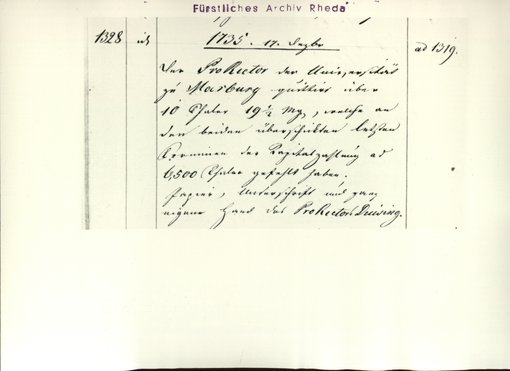 Fürstliches Archiv Rheda
1328 id 1735. 17. Dezbr ad 1319.
Der ProRector der Universität
zu Marburg quittirt über
10 Thaler 19½ Mg, welche an
den beiden überschickten letzten
der Kapitalzahlung ad
6,500 Thaler gefehlt haben.
Papier, Unterschrift und ganz
eigene Hand des ProRectors